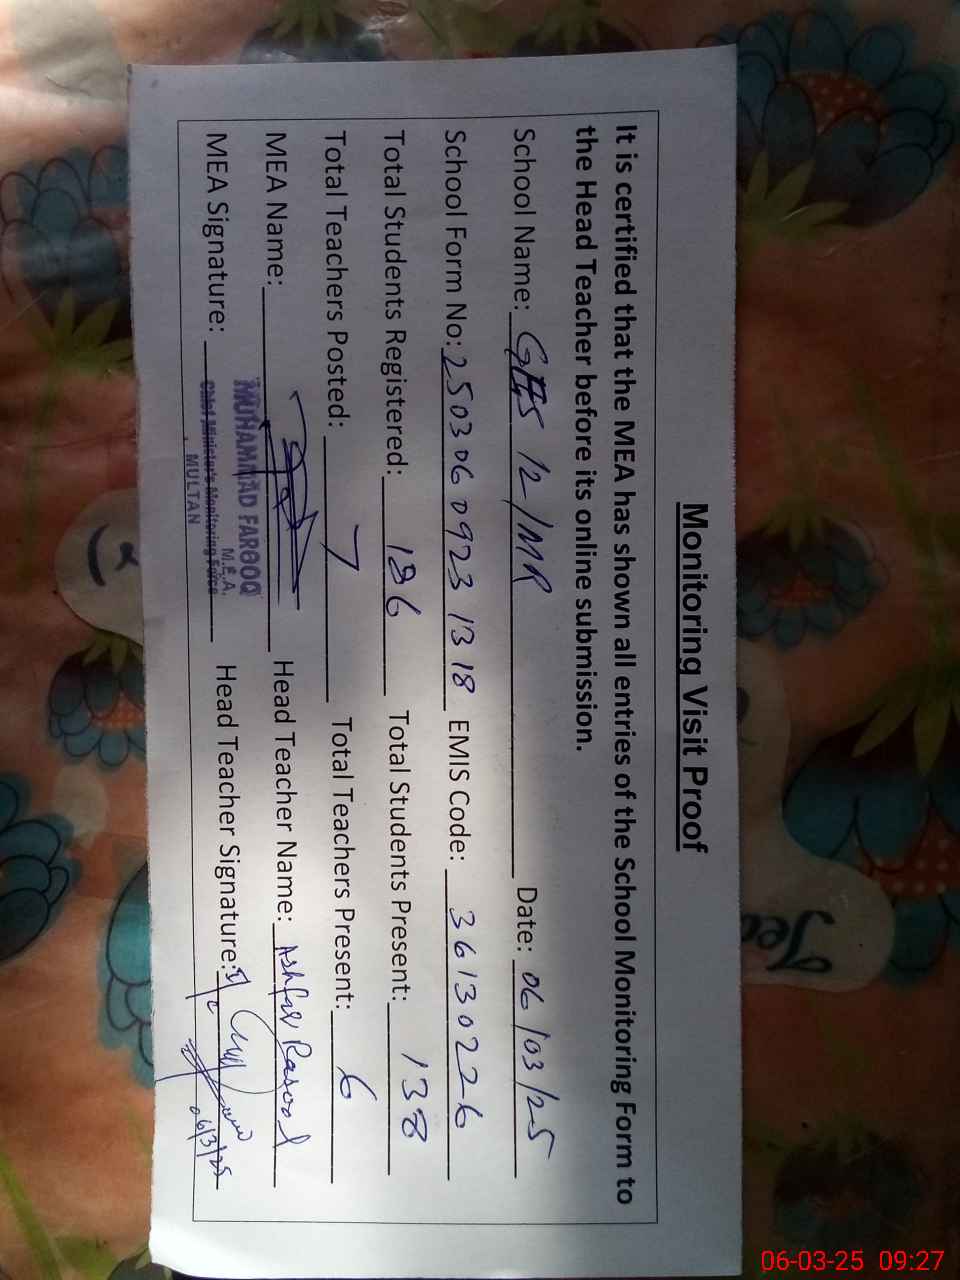 Monitoring Visit Proof
It is certified that the MEA has shown all entries of the School Monitoring Form to
the Head Teacher before its online submission.
School Name: GES 12/MR Date: 06/03/25
School Form No: 2503060923 1318 EMIS Code: 36130226
Total Students Registered: 186 Total Students Present: 138
Total Teachers Posted: 7 Total Teachers Present: 6
MEA Name: Head Teacher Name: Ashfaq Rasool
MUHAMMAD FAROOQ
M.E.A.
MEA Signature: Chief Minister's Monitoring Force Head Teacher Signature:
MULTAN
06/3/25
Tea
06-03-25 09:27